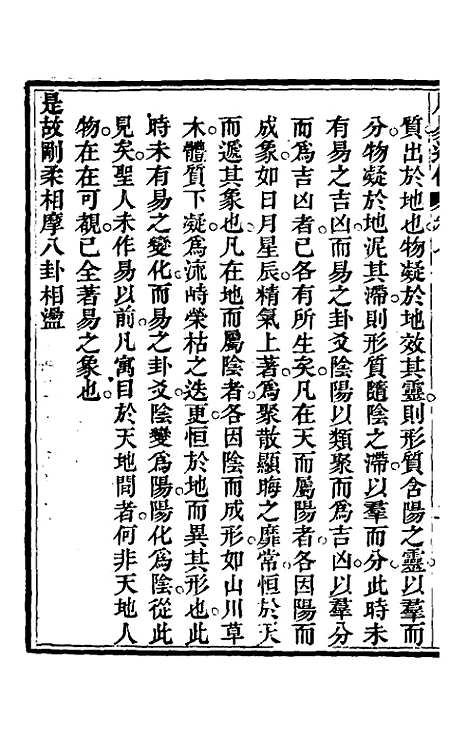 質出於地也物凝於地效其靈則形質含陽之靈以羣而
分物凝於地泥其滯則形質隨陰之滯以羣而分此時未
有易之吉凶而易之卦爻陰陽以類聚而爲吉凶以羣分
而爲吉凶者已各有所生矣凡在天而屬陽者各因陽而
成象如日月星辰精氣上著爲聚散顯晦之靡常恒於天
而遞其象也凡在地而屬陰者各因陰而成形如山川草
木體質下凝爲流峙榮枯之迭更恒於地而異其形也此
時未有易之變化而易之卦爻陰變爲陽陽化爲陰從此
見矣聖人未作易以前凡寓目於天地間者何非天地人
物在在可觀已全著易之象也
是故剛柔相摩八卦相盪